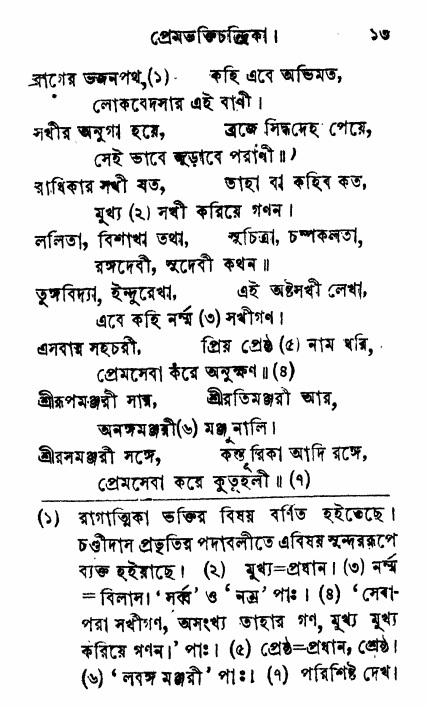 প্রেমভক্তিচন্দ্রিকা। ১৩
রাগের ভজনপথ,(১) কহি এবে অভিমত,
লোকবেদসার এই বাণী।
সখীর অনুগা হয়ে, ব্রজে সিদ্ধদেহ পেয়ে,
সেই ভাবে জুড়াবে পরাণী॥
রাধিকার সখী যত, তাহা বা কহিব কত,
মুখ্য (২) সখী করিয়ে গণন।
ললিতা, বিশাখা তথা, সুচিত্রা, চম্পকলতা,
রঙ্গদেবী, সুদেবী কথন॥
তুঙ্গবিদ্যা, ইন্দুরেখা, এই অষ্টসখী লেখা,
এবে কহি নর্ম্ম (৩) সখীগণ।
এসবার সহচরী, প্রিয় প্রেষ্ঠ (৫) নাম ধরি,
প্রেমসেবা করে অনুক্ষণ॥ (৪)
শ্রীরূপমঞ্জরী সার, শ্রীরতিমঞ্জরী আর,
অনঙ্গমঞ্জরী(৬) মঞ্জুনালি।
শ্রীরসমঞ্জরী সঙ্গে, কস্তূরিকা আদি রঙ্গে,
প্রেমসেবা করে কুতূহলী॥ (৭)
(১) রাগাত্মিকা ভক্তির বিষয় বর্ণিত হইতেছে।
চণ্ডীদাস প্রভৃতির পদাবলীতে এবিষয় সুন্দররূপে
ব্যক্ত হইয়াছে। (২) মুখ্য=প্রধান। (৩) নর্ম্ম
=বিলাস। ‘মর্ম্ম’ ও ‘নম্র’ পাঃ। (৪) ‘সেবা-
পরা সখীগণ, অসংখ্য তাহার গণ, মুখ্য মুখ্য
করিয়ে গণন।’ পাঃ। (৫) প্রেষ্ঠ=প্রধান, শ্রেষ্ঠ।
(৬) ‘লবঙ্গ মঞ্জরী’ পাঃ। (৭) পরিশিষ্ট দেখ।